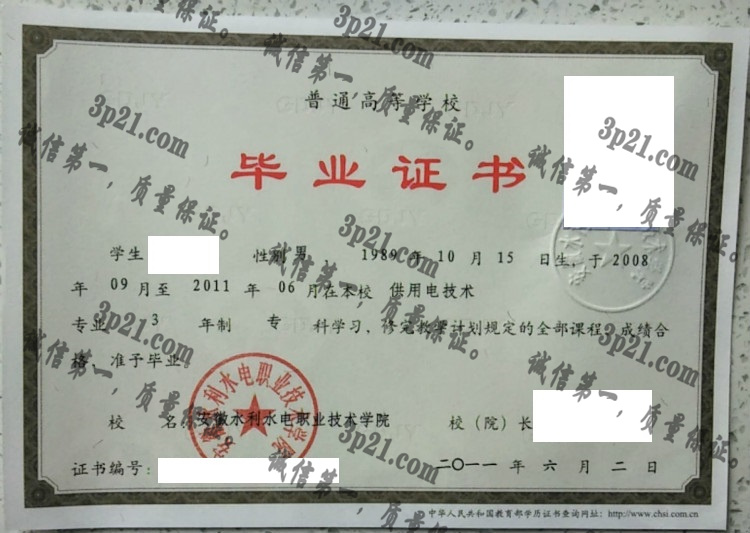 普通高等学校
毕业证书
学生 性别 男 1989 年 10 月 15 日生，于 2008
年 09 月至 2011 年 06 月在本校 供用电技术
专业 3 年制 专 科学习，修完教学计划规定的全部课程，成绩合
格，准予毕业
校 名：安徽水利水电职业技术学院 校（院）长
证书编号：
二〇一一年 六 月 二 日
中华人民共和国教育部学历证书查询网址：http://www.chsi.com.cn
安徽水利水电职业技术学院
3p21.com
诚信第一，质量保证。
3p21.com
诚信第一，质量保证。
3p21.com
诚信第一，质量保证。
3p21.com
诚信第一，质量保证。
3p21.com
诚信第一，质量保证。
3p21.com
诚信第一，质量保证。
3p21.com
诚信第一，质量保证。